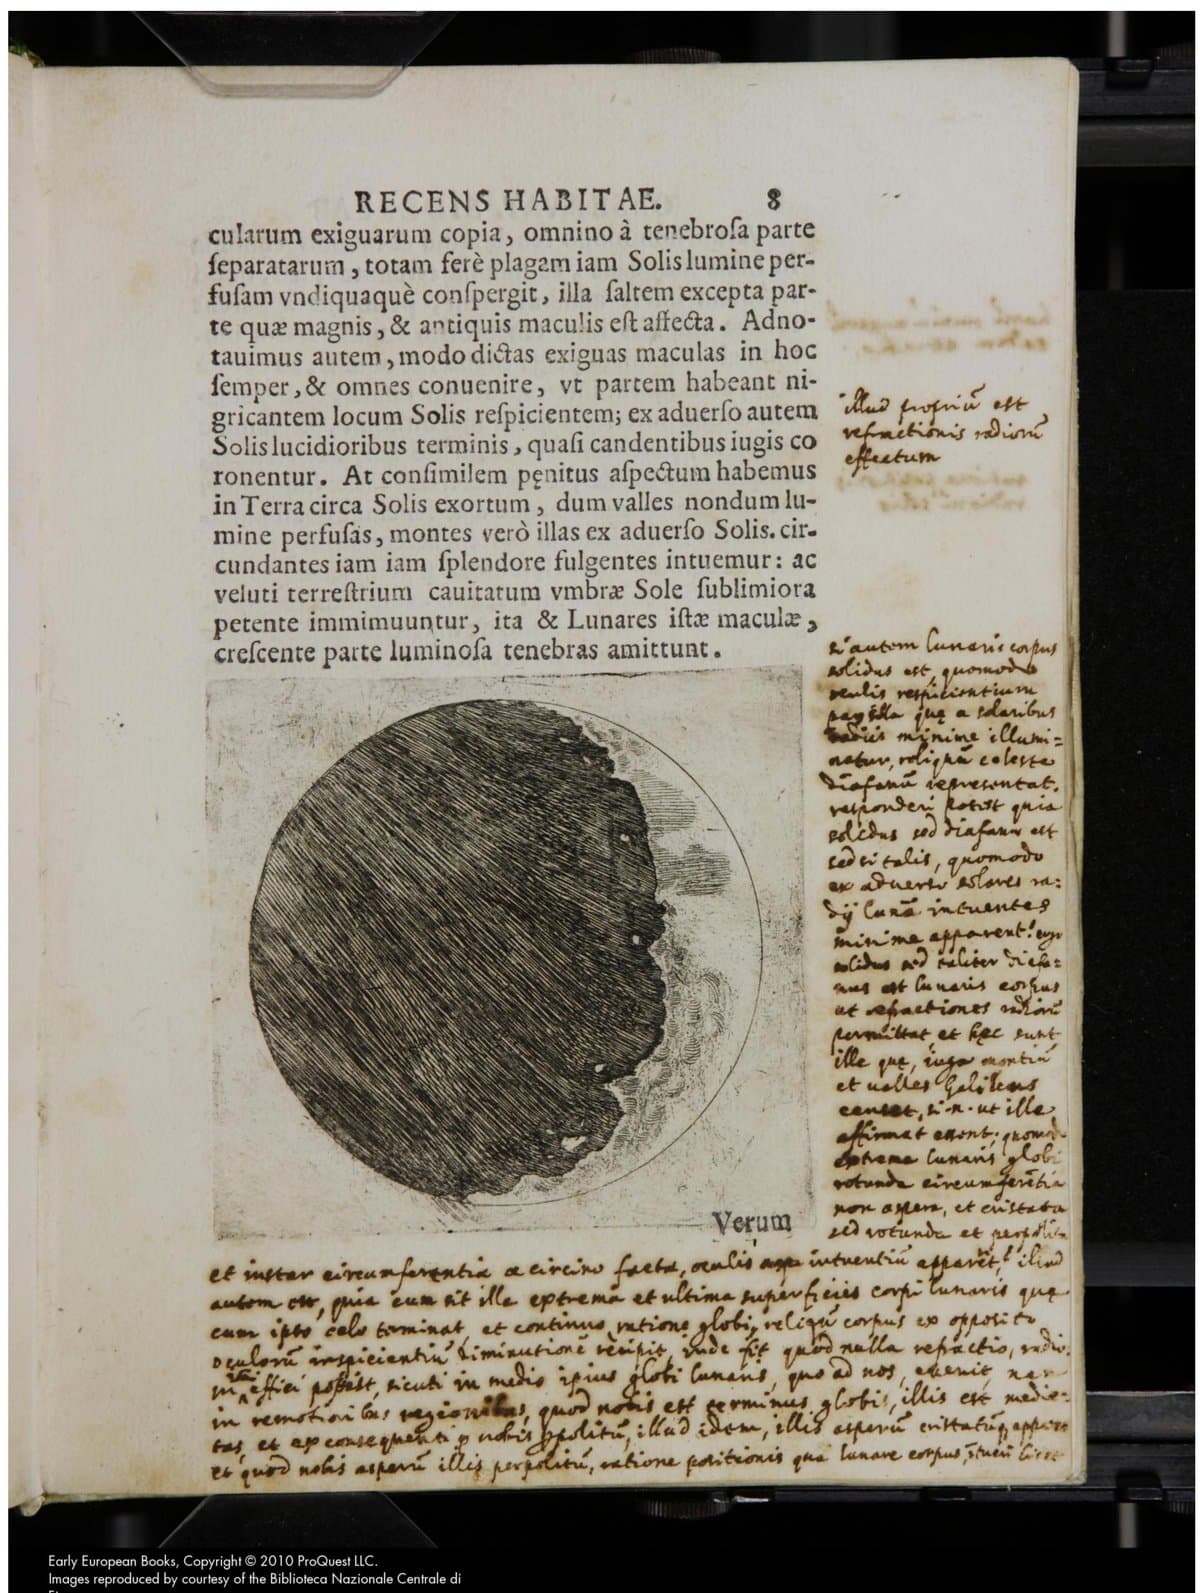 RECENS HABITAE. 8
cularum exiguarum copia, omnino à tenebroſa parte
ſeparatarum, totam ferè plagam iam Solis lumine per-
fuſam vndiquaquè conſpergit, illa ſaltem excepta par-
te quæ magnis, & antiquis maculis eſt affecta. Adno-
tauimus autem, modo dictas exiguas maculas in hoc
ſemper, & omnes conuenire, vt partem habeant ni-
gricantem locum Solis reſpicientem; ex aduerſo autem
Solis lucidioribus terminis, quaſi candentibus iugis co
ronentur. At conſimilem pęnitus aſpectum habemus
in Terra circa Solis exortum, dum valles nondum lu-
mine perfuſas, montes verò illas ex aduerſo Solis. cir-
cundantes iam iam ſplendore fulgentes intuemur: ac
veluti terreſtrium cauitatum vmbræ Sole ſublimiora
petente immimuuntur, ita & Lunares iſtæ maculæ,
creſcente parte luminoſa tenebras amittunt.
Verum
illud propriũ est
refractionis radiorũ
effectum
si autem lunaris corpus
solidus est, quomodo
oculis respicientium
pars illa quę a solaribus
radiis minime illumi=
natur, reliquũ celeste
diafanũ representat.
responderi potest quia
solidus sed diafanus est
sed si talis, quomodo
ex adverso solares ra=
dij lunã intuentes
minime apparent?
solidus sed taliter diafa=
nus est lunaris corpus
ut refractiones radiorũ
permittat, et hęc sunt
ille quę, iuga montiũ
et valles Galileus
censet, si.n. ut ille
affirmat essent, quomodo
extreme lunaris globi
rotunda circumferẽtia
non aspera, et cristata
sed rotunda et perpolita
et instar circumferentia a circino facta, oculis intuentiũ apparet? illud
autem est, quia cum sit illa extrema et ultima superficies corpi lunaris quę
cum ipso celo terminat, et continuo, ratione globi, reliqũ corpus ex opposito
oculorũ inspicientiũ diminutionẽ recipit, unde fit quod nulla refractio, radio.
effici possit, sicuti in medio ipius globi lunaris, quo ad nos, evenit, nam
in remotioribus regionibus, quod nobis est terminus globi, illis est medie=
tas, et ex consequenti nobis politũ, illud idem, illis asperũ cristatũ
et quod nobis asperũ illis perpolitũ, ratione positionis qua lunare corpus,
Early European Books, Copyright © 2010 ProQuest LLC.
Images reproduced by courtesy of the Biblioteca Nazionale Centrale di